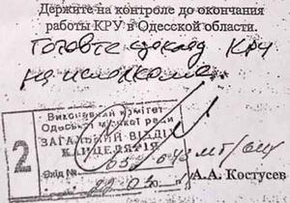 Держите на контроле до окончания
работы КРУ в Одесской области.
Готовте доклад КРУ
на исполкоме.
Виконавчий комітет
Одеської міської ради
ЗАГАЛЬНИЙ ВІДДІЛ
КАНЦЕЛЯРІЯ
2
Вхід №
А.А. Костусев